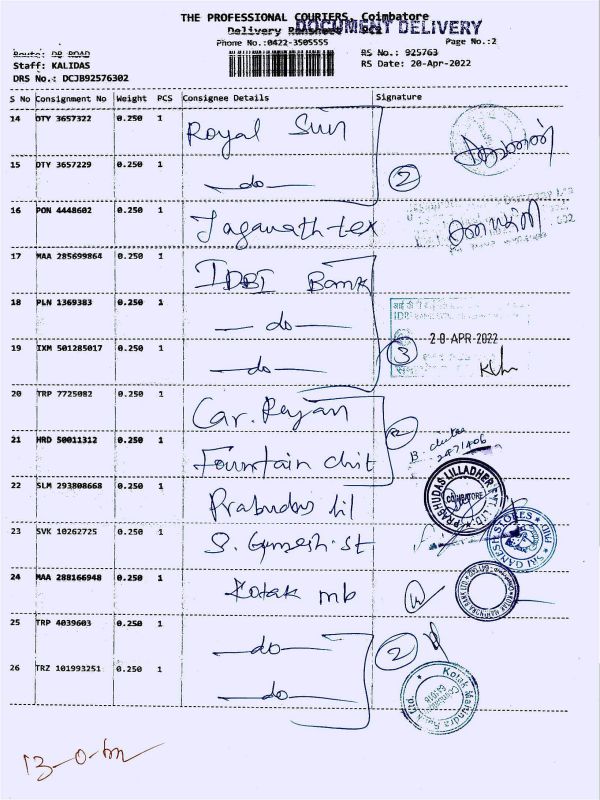 THE PROFESSIONAL COURIERS, Coimbatore
DOCUMENT DELIVERY
Delivery Runsheet
Phone No.:0422-3505555
Page No.:2
Route: DB ROAD
RS No.: 925763
Staff: KALIDAS
RS Date: 20-Apr-2022
DRS No.: DCJB92576302
S No Consignment No Weight PCS Consignee Details Signature
14 DTY 3657322 0.250 1 Royal Sun
15 DTY 3657229 0.250 1 —do— 2
16 PON 4448602 0.250 1 Jaganath tex
17 MAA 285699864 0.250 1 IDBI Bank
18 PLN 1369383 0.250 1 —do—
20 APR 2022
19 IXM 501285017 0.250 1 —do— 3
20 TRP 7725082 0.250 1 Car.
21 HRD 50011312 0.250 1 Fountain chit
22 SLM 293808668 0.250 1 Prabudas lil
PRABHUDAS LILLADHER PVT. LTD. COIMBATORE
23 SVK 10262725 0.250 1 S. Ganesh. st
SRI GANESH STORES
24 MAA 288166948 0.250 1 Kotak mb
25 TRP 4039603 0.250 1 —do— 2
26 TRZ 101993251 0.250 1 —do—
Kotak Mahindra Bank Ltd.